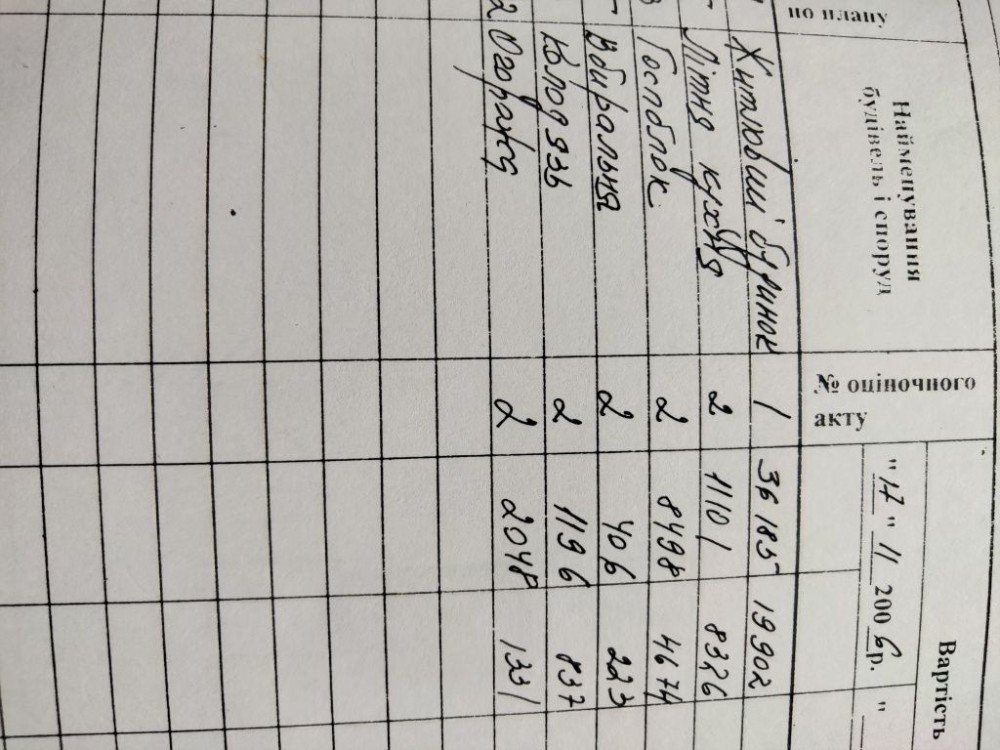 по плану
Найменування
будівель і споруд
№ оціночного
акту
Вартість
"17" 11 2006р. "
Житловий будинок 1 36185 19902
Літня кухня 2 11101 8326
Госпблок 2 8498 4674
Вбиральня 2 406 223
Колодязь 2 1196 837
2 Огорожа 2 2048 1331